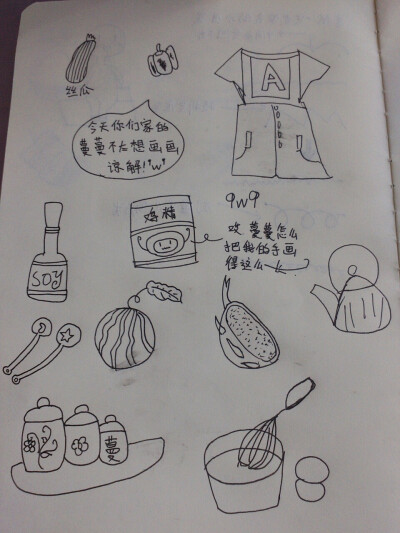 丝瓜
A
今天你们家的
蔓蔓不太想画画
谅解!!'w'
鸡精
9w9
哎 蔓蔓怎么
把我的手画
得这么
SOY
蔓